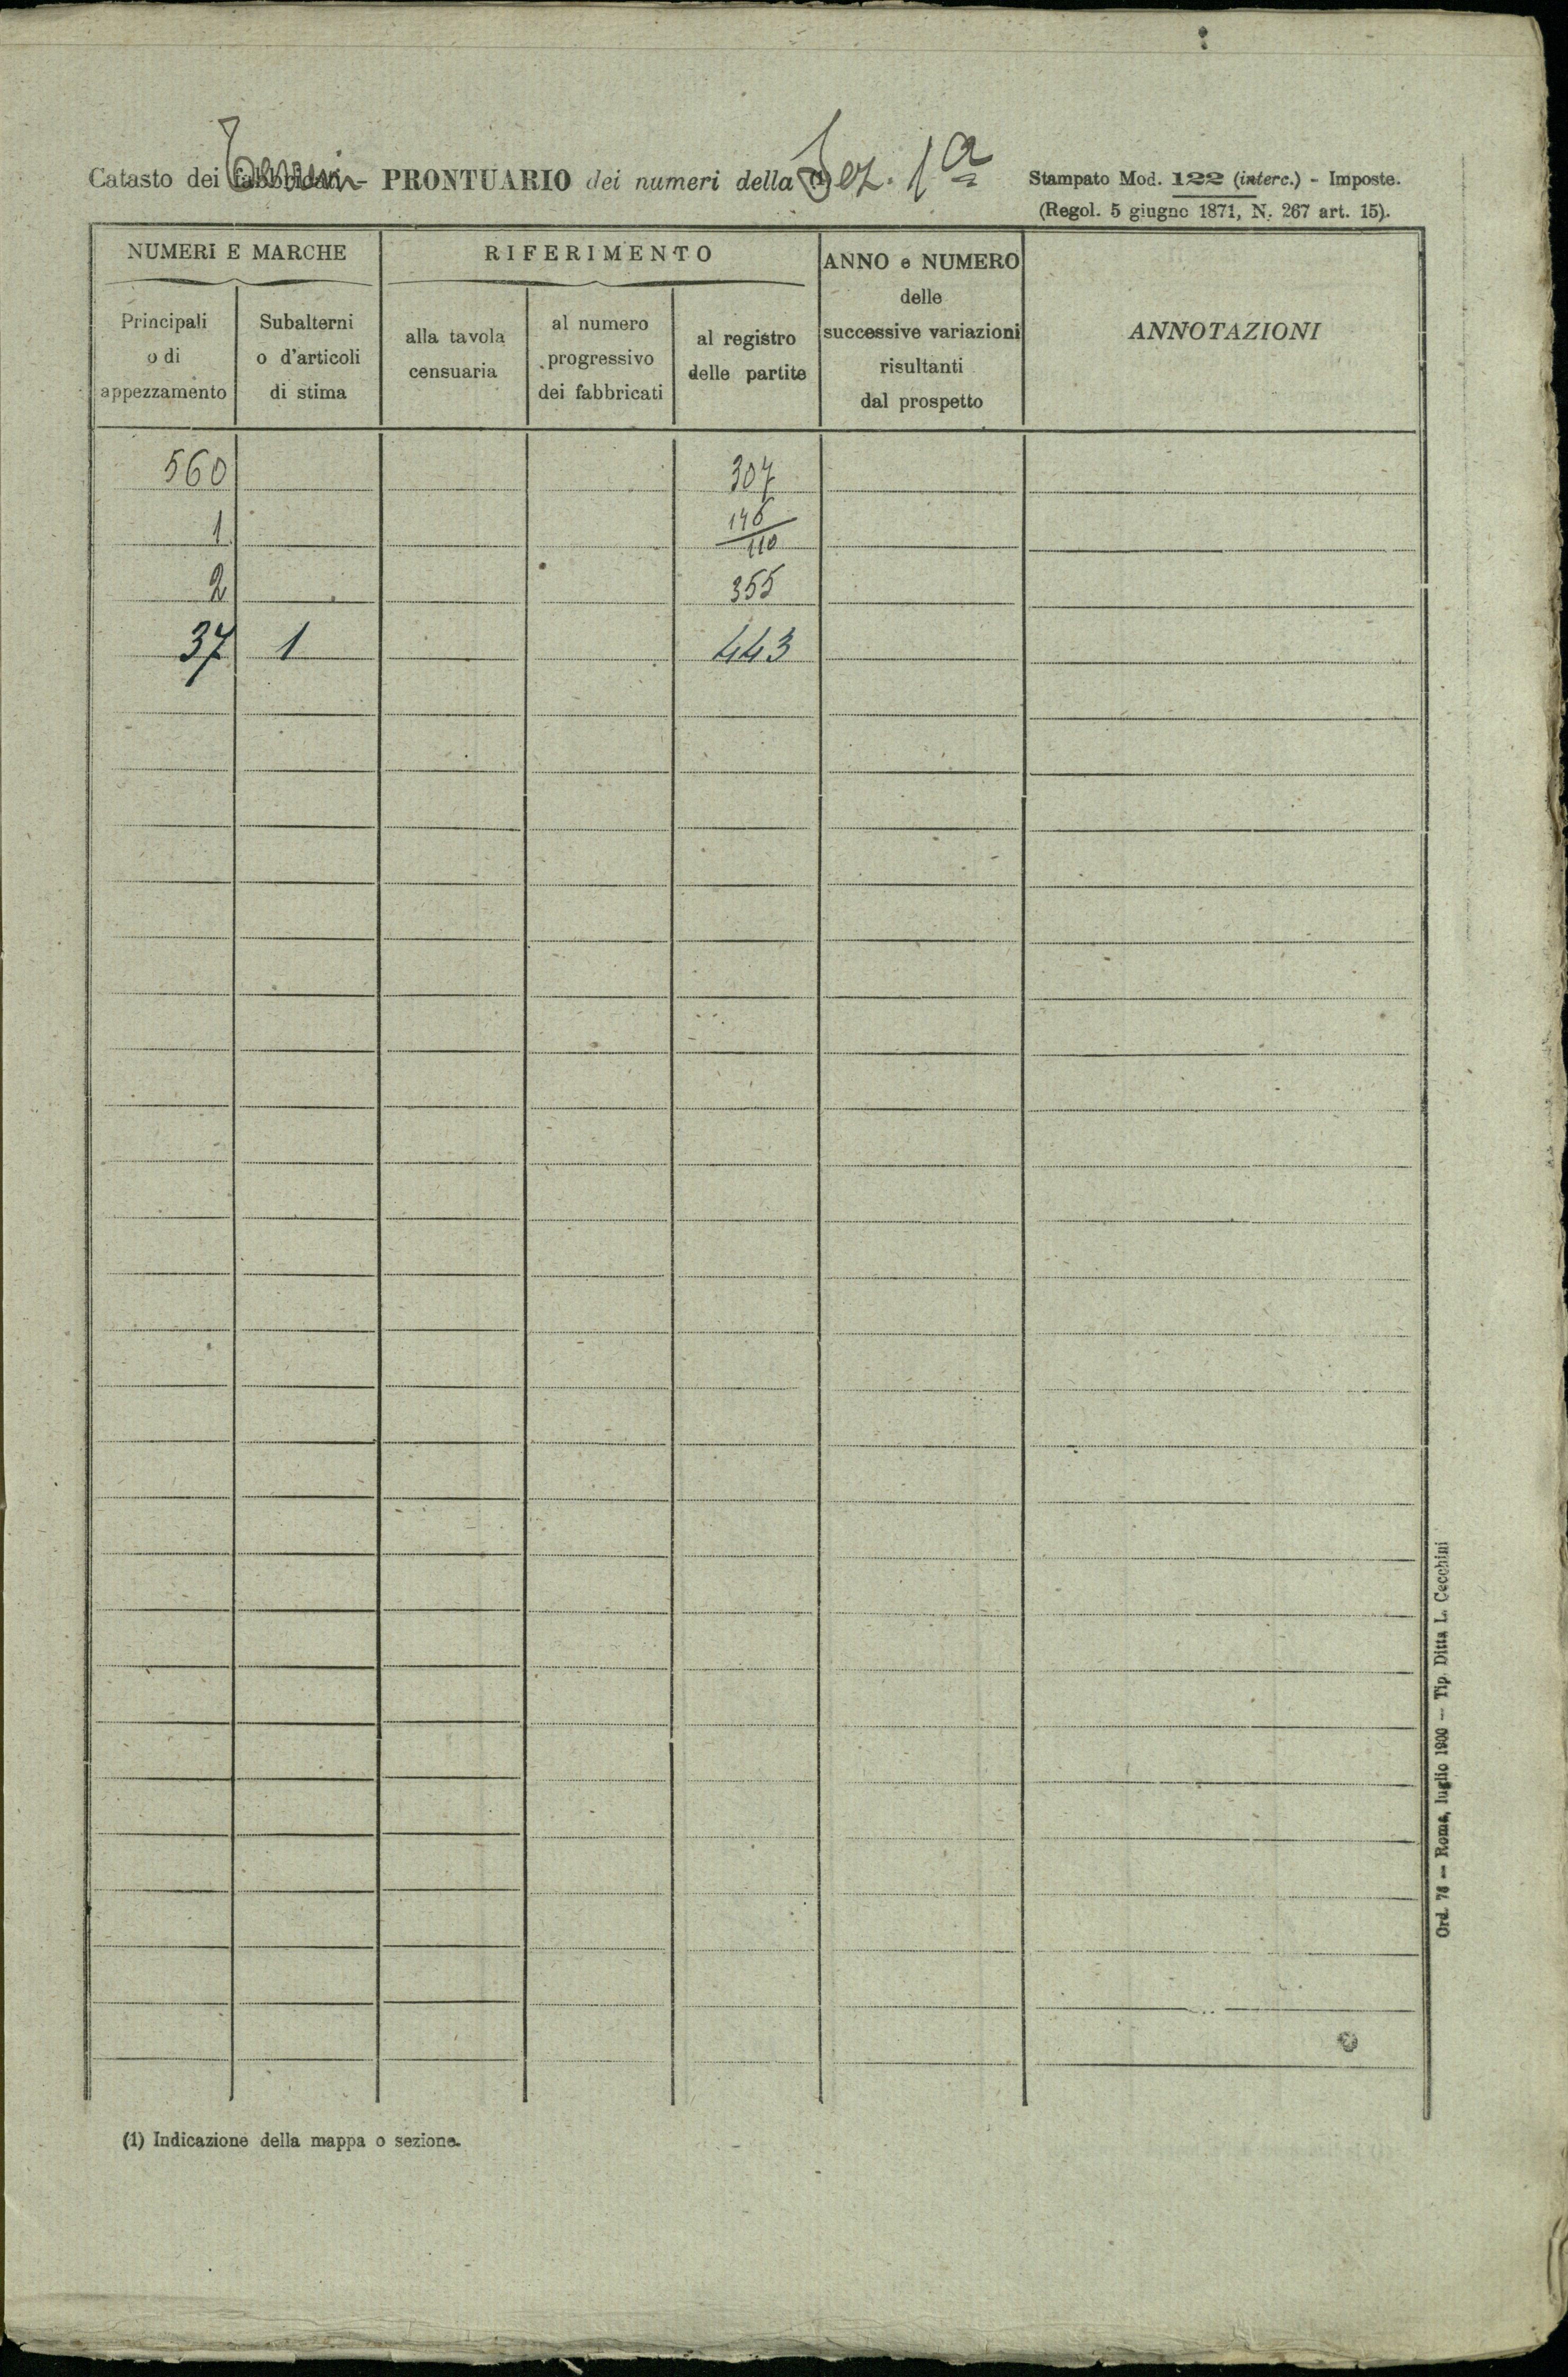 Catasto dei Terreni - PRONTUARIO dei numeri della Sez. 1a
Stampato Mod. 122 (interc.) - Imposte.
(Regol. 5 giugno 1871, N. 267 art. 15).
NUMERI E MARCHE
RIFERIMENTO
ANNO e NUMERO
delle
successive variazioni
risultanti
dal prospetto
ANNOTAZIONI
Principali
o di
appezzamento
Subalterni
o d'articoli
di stima
alla tavola
censuaria
al numero
progressivo
dei fabbricati
al registro
delle partite
560 307
1 146
110
2 355
37 1 443
(1) Indicazione della mappa o sezione.
Ord. 76 — Roma, luglio 1900 — Tip. Ditta L. Cecchini